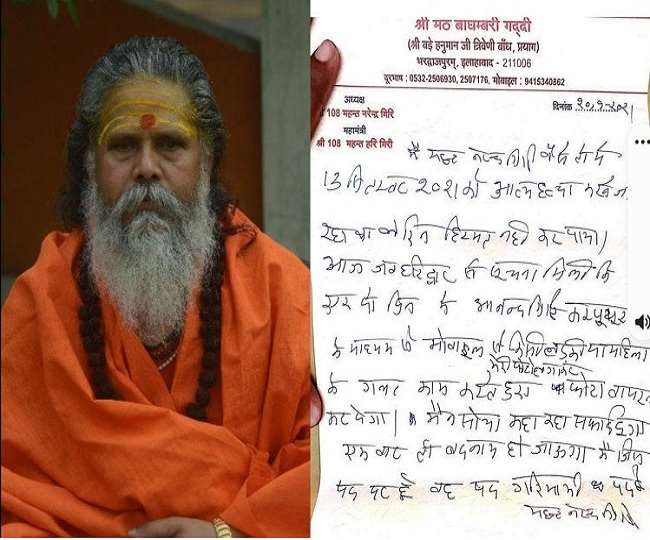 श्री मठ बाघम्बरी गद्दी
(श्री बड़े हनुमान जी त्रिवेणी बाँध, प्रयाग)
भरद्वाजपुरम्, इलाहाबाद - 211006
दूरभाष : 0532-2506930, 2507176, मोबाइल : 9415340862
अध्यक्ष
108 महन्त नरेन्द्र गिरि
महामंत्री
श्री 108 महन्त हरि गिरी
दिनांक
मै महन्त नरेन्द्र गिरि
13 सितम्बर २०२१ को आत्महत्या करने जा
रहा था लेकिन हिम्मत नही कर पाया।
आज जब हरिद्वार से सूचना मिली कि
एक दो दिन मे आनन्द गिरि कम्प्यूटर
के माध्यम से मोबाइल से किसी लड़की या महिला
मेरी फोटो लगाकर
के गलत काम करते हुए फोटो वायरल
कर देगा। मैने सोचा कहा तक सफाई दूंगा
एक बार तो बदनाम हो जाऊगा मै जिस
पद पर हूं वह पद गरिमामयी पद है
महन्त नरेन्द्र गिरि